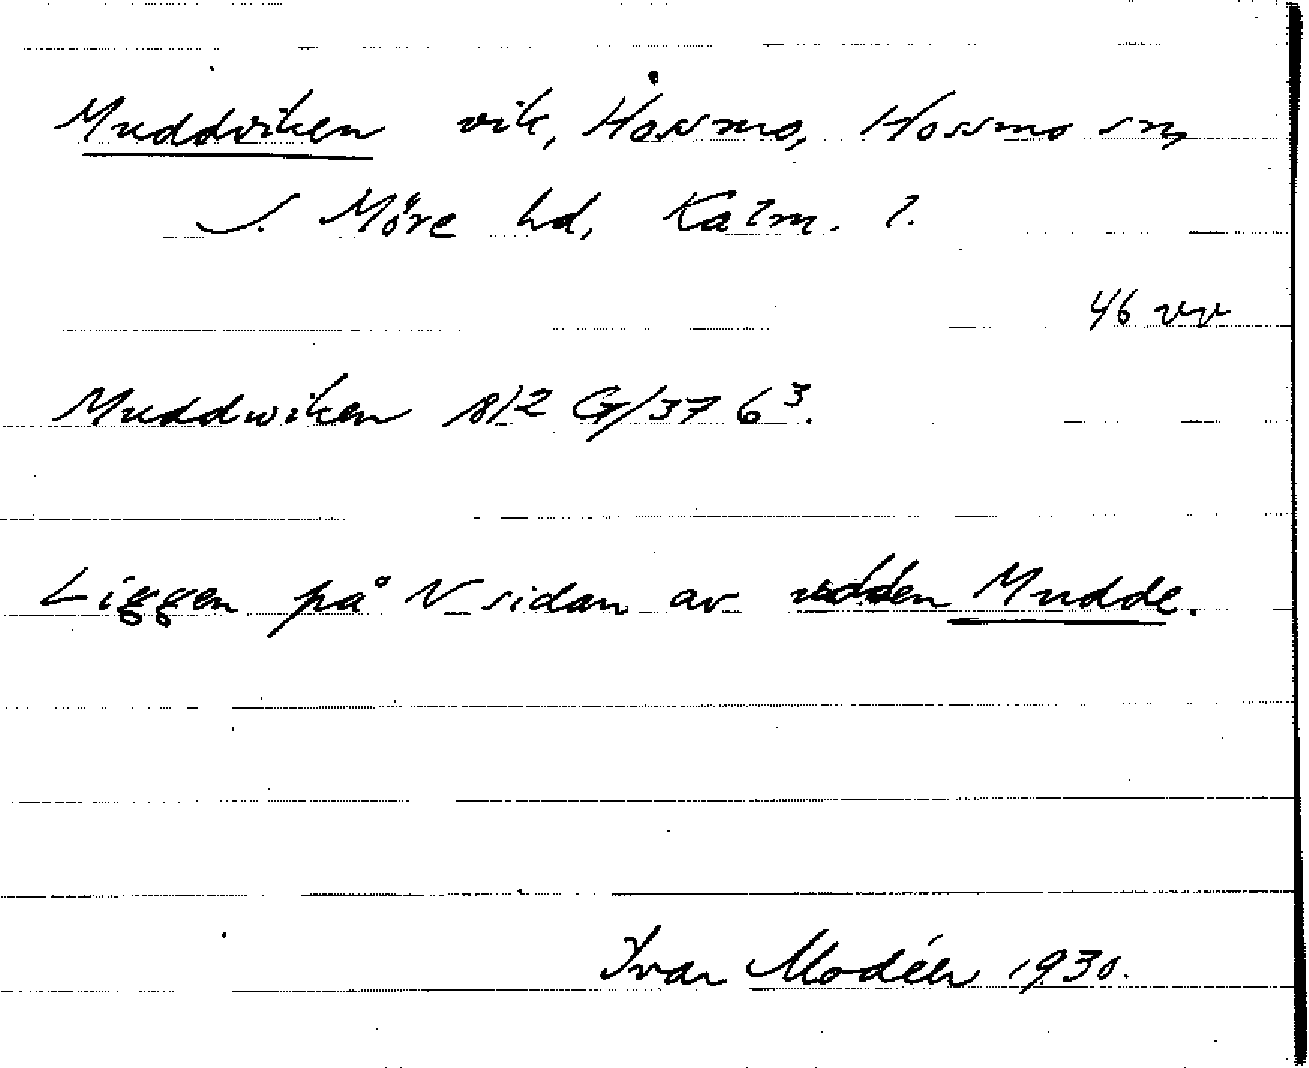 Muddviken vik, Hossmo, Hossmo sn,
S. Möre hd, Kalm. l.
46 vv
Muddwiken 1812 G/37 6³.
Ligger på V sidan av udden Mudde.
Ivar Modéer 1930.